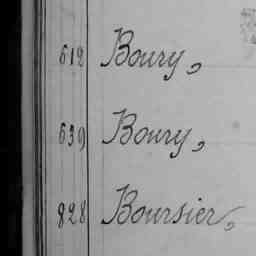 612 Boury,
639 Boury,
828 Boursier,